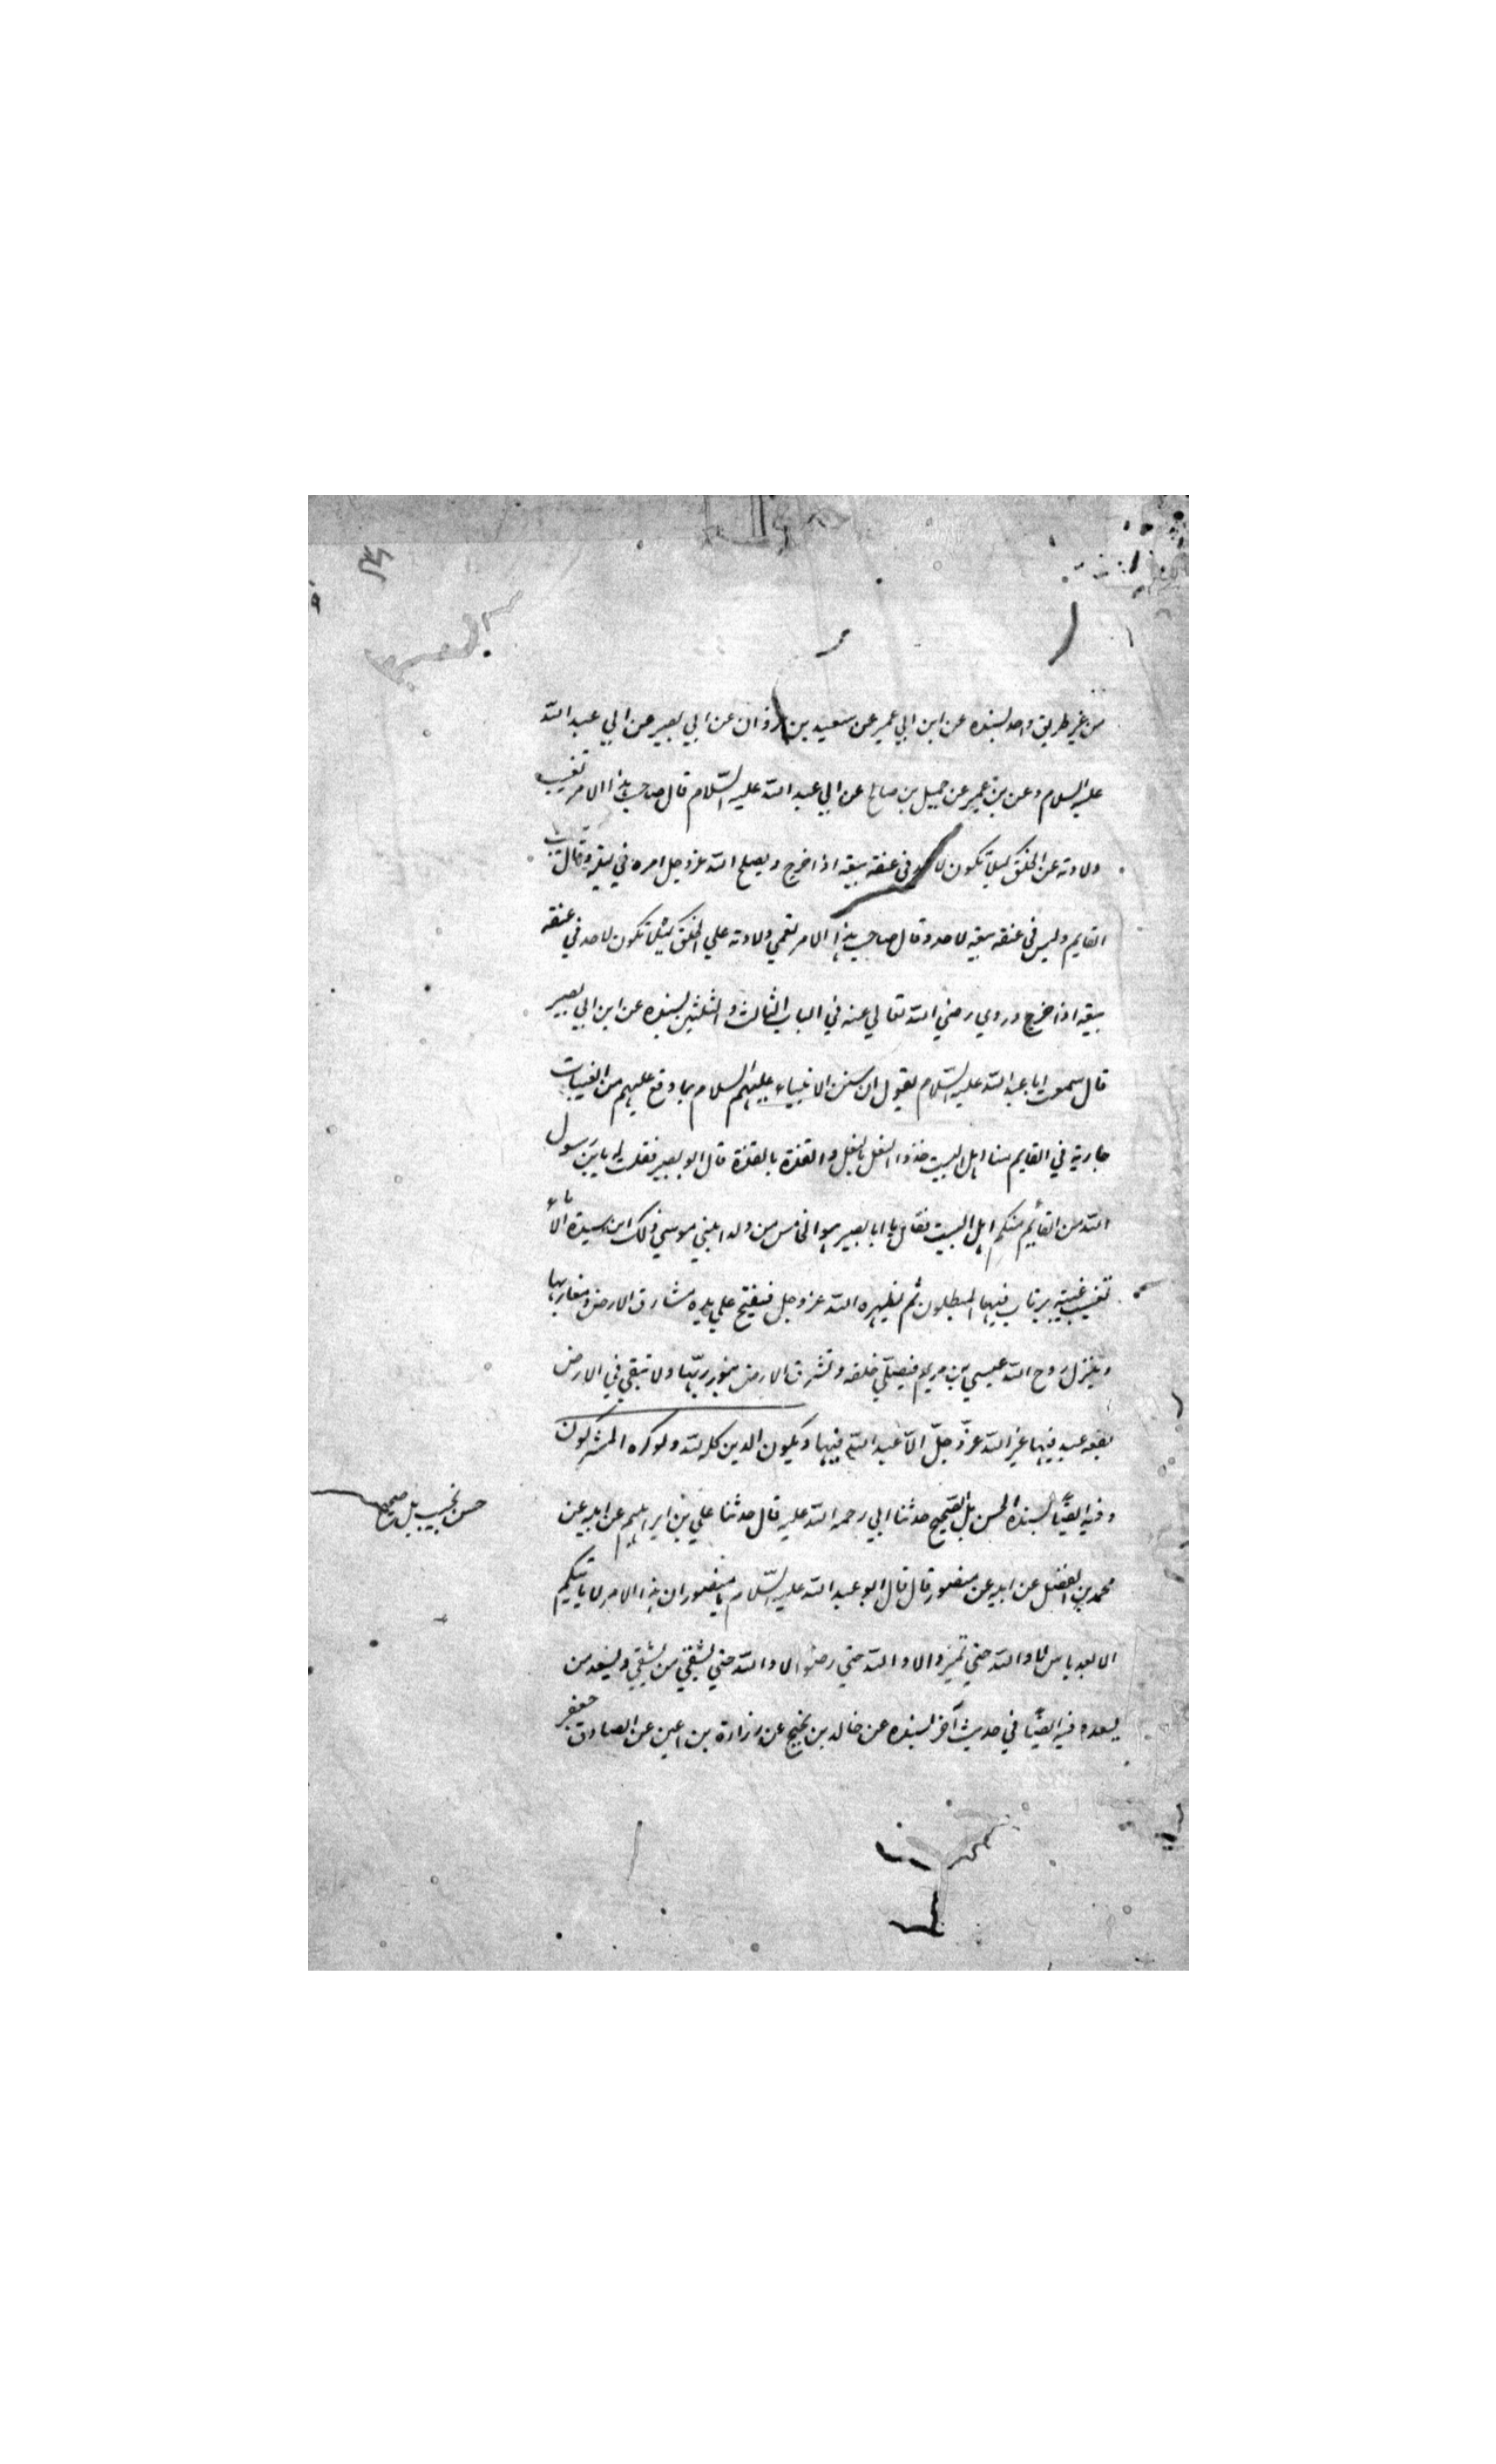 من غير طريق واحد بسنده عن ابن ابي عمير عن سعيد بن غزوان عن ابي بصير عن ابي عبد الله
عليه السلام وعن بن عمير عن جميل بن صالح عن ابي عبد الله عليه السّلام قال صاحب هذا الامر تغيب
ولادته عن الخلق كيلا تكون لاحد في عنقه بيعه اذا خرج ويصلح الله عز وجل امره في ليلة وقال
القايم وليس في عنقه بيعه لاحد وقال صاحب هذا الامر تعمي ولادته علي الخلق لئلا تكون لاحد في عنقه
بيعه اذا خرج وروي رضي الله تعالي عنه في الباب الثالث والثلثين بسنده عن ابن ابي بصير
قال سمعت ابا عبد الله عليه السّلام يقول ان سنن الانبياء عليهم السلام بما وقع عليهم من الغيبات
جارية في القايم منا اهل البيت حذو النعل بالنعل والقذة بالقذة قال ابو بصير فقلت له يابن رسول
الله من القائم منكم اهل البيت فقال يا ابا بصير هو الخامس من ولد ابني موسي ذلك ابن سيدة الأماء
تغيب غيبة يرتاب فيها المبطلون ثم يظهره الله عز وجل فيفتح علي يده مشارق الارض ومغاربها
وينزل روح الله عيسي بن مريم فيصلّي خلفه وتشرق الارض بنور ربّها ولا تبقي في الارض
بقعه عبد فيها غير الله عزّ وجلّ الاّ عبد الله فيها ويكون الدين كله لله ولو كره المشركون
وفيه ايضًا بسنده الحسن بل الصّحيح حدثنا ابي رحمه الله عليه قال حدثنا علي بن ابراهيم عن ابيه عن
محمد بن الفضل عن ابيه عن منصور قال قال ابو عبد الله عليه السّلام يا منصور ان هذا الامر لا ياتيكم
الا بعد ياس لا والله حتي تميزوا لا والله حتي لا والله حتي يشقي من يشقي ويسعد من
يسعد وفيه ايضًا في حديث آخر بسنده عن خالد بن نجيح عن زرارة بن اعين عن الصادق جعفر
حسن نجيب بل صحيح